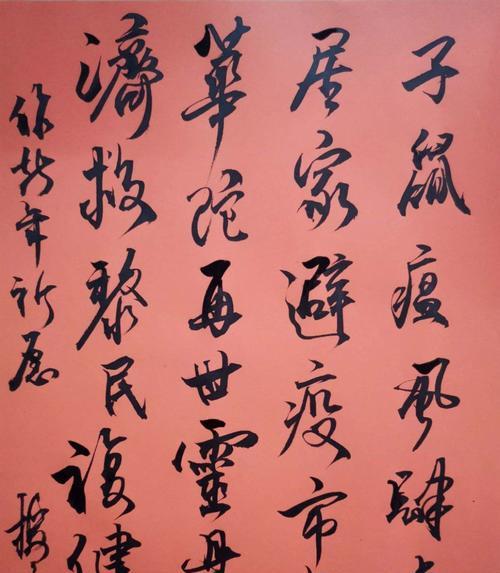 子鼠瘟風肆
居家避疫市
華陀再世靈丹
濟救黎民複健
年祈愿